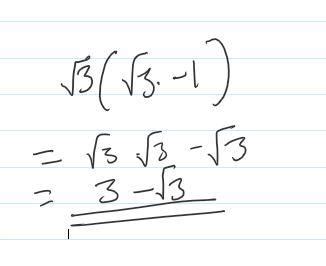 √3(√3. -1)
= √3 √3 - √3
= 3 - √3